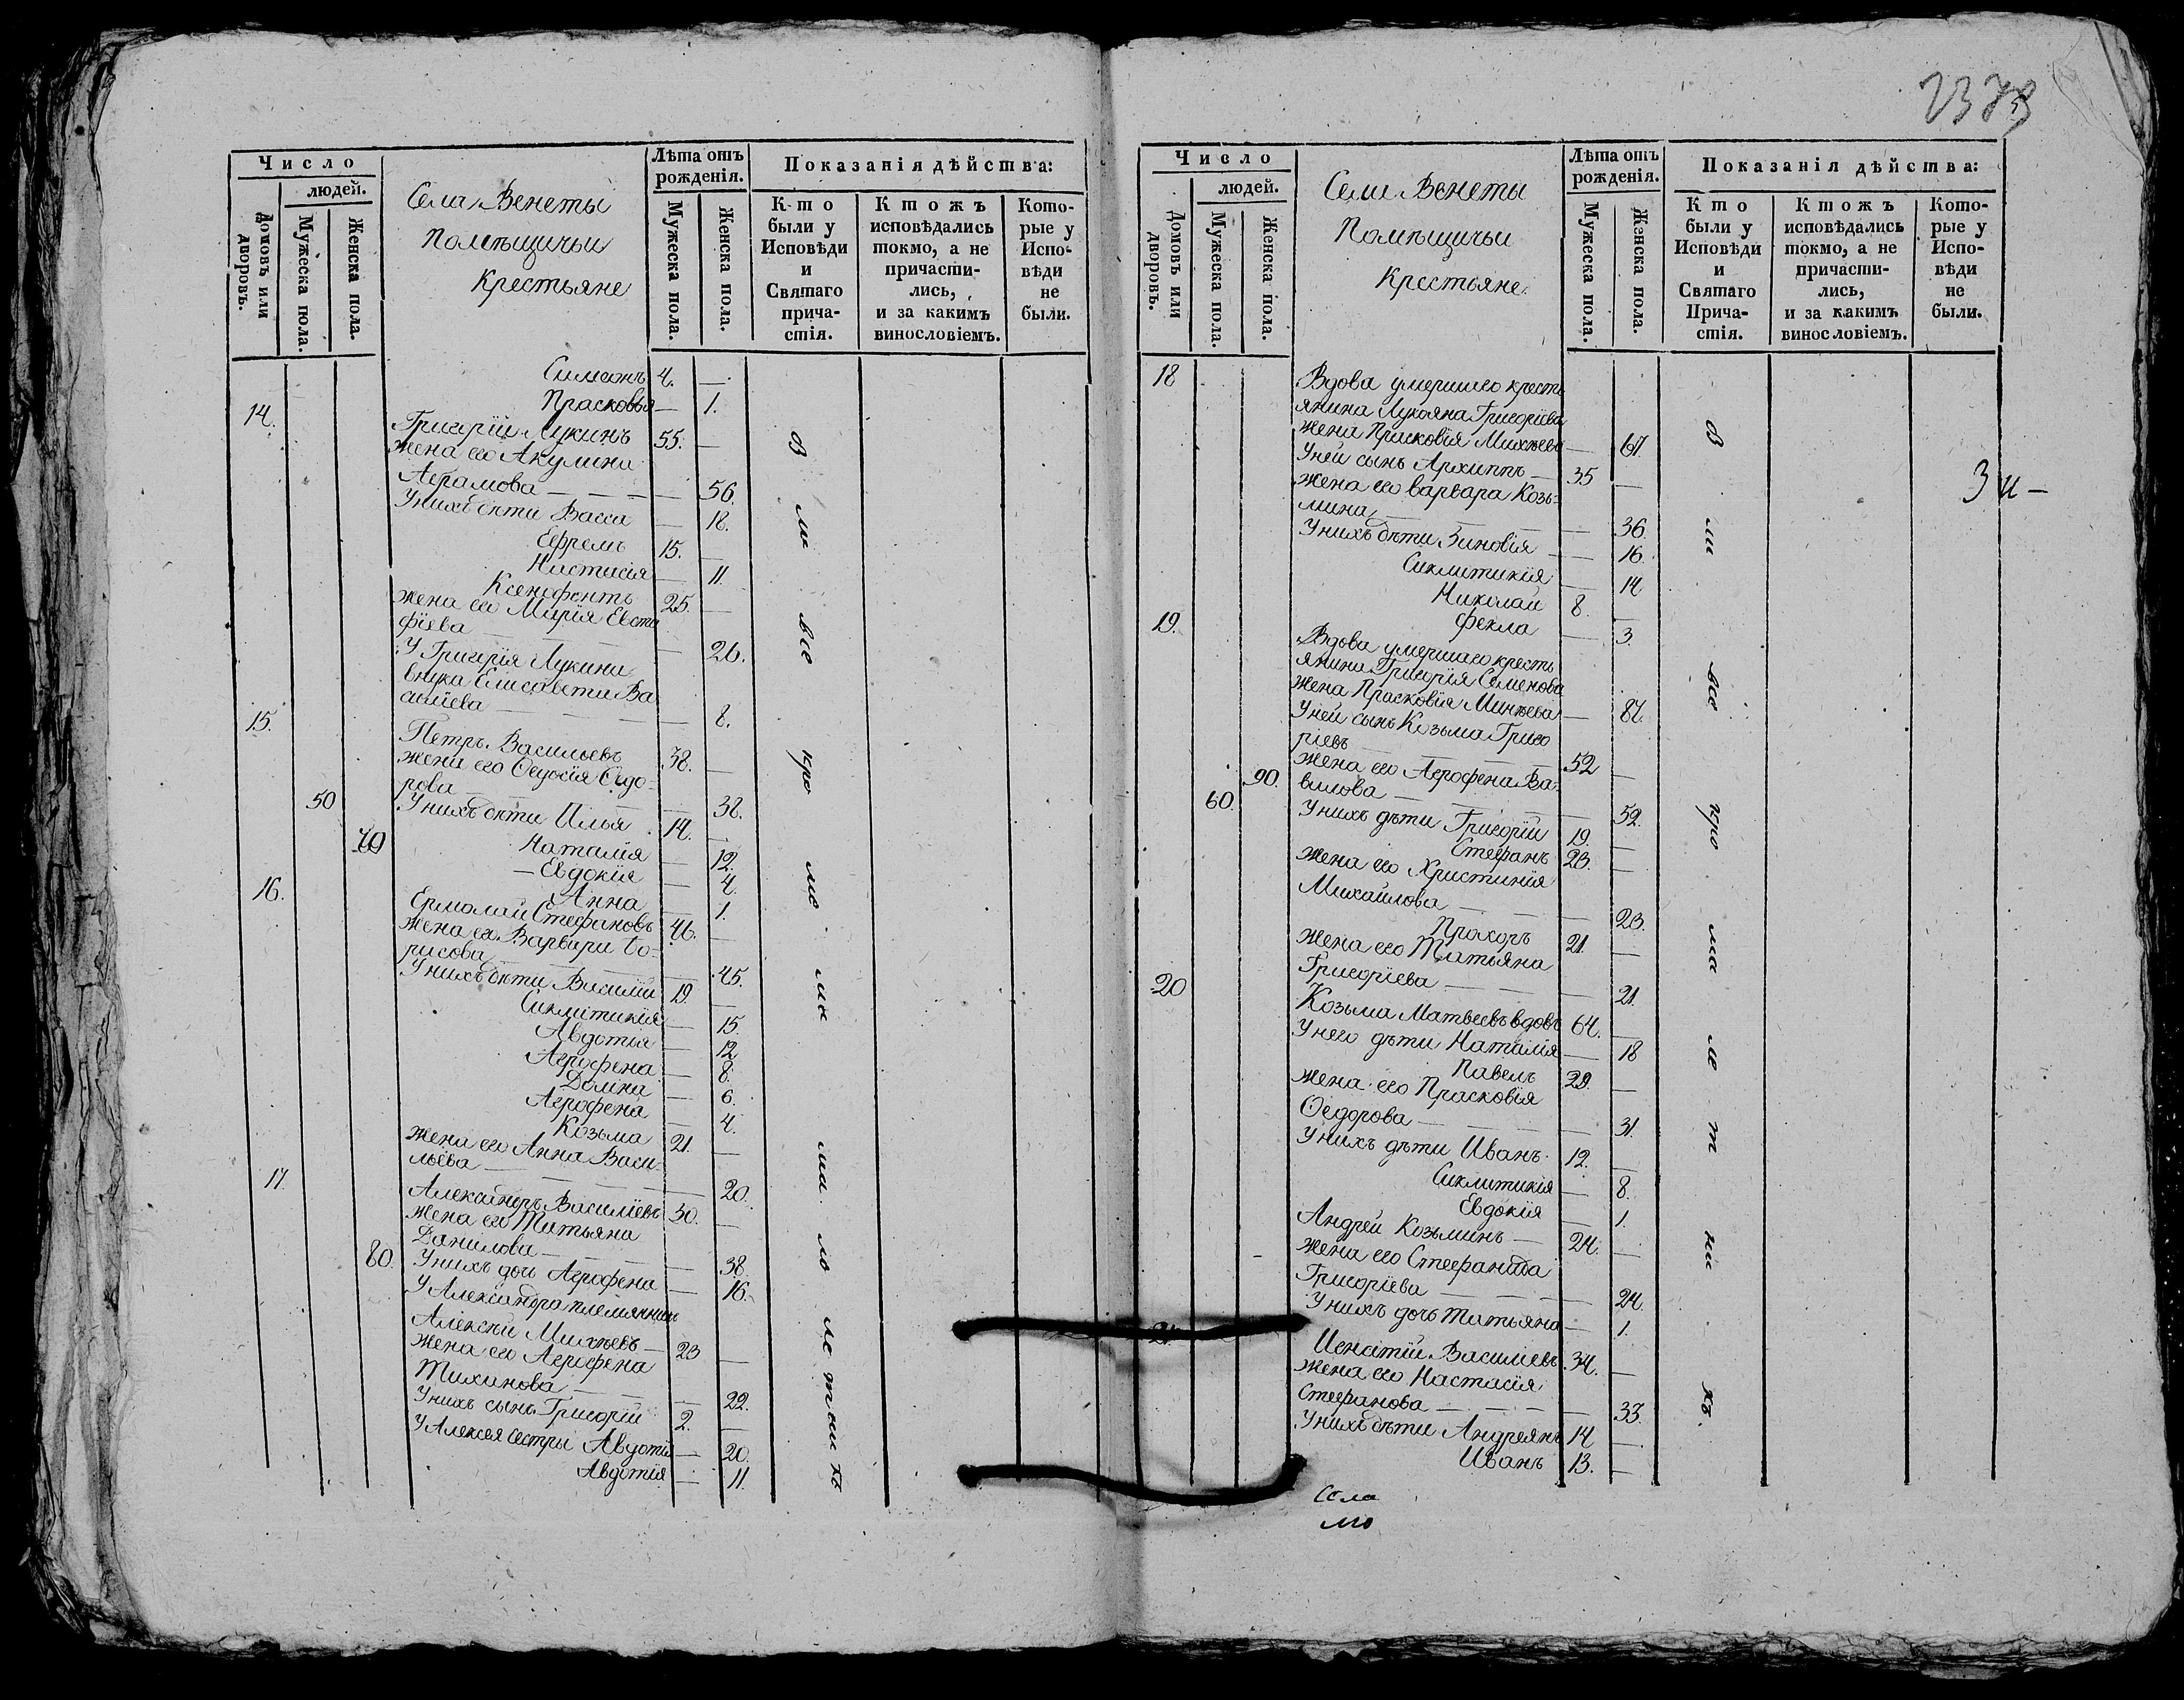 Число
людей.
Домовъ или дворовъ.
Мужеска пола.
Женска пола.
Села Венеты
Помѣщичьи
Крестьяне
Лѣта отъ
рожденія.
Мужеска пола.
Женска пола.
Показанія дѣйства:
Кто
были у
Исповѣди
и
Святаго
прича-
стія.
Ктожъ
исповѣдались
токмо, а не
причасти-
лись,
и за какимъ
винословіемъ.
Кото-
рые у
Испо-
вѣди
не
были.
Симеонъ 4. —
Прасковья — 1.
14.
Григорій Лукинъ 55. —
жена его Акулина
Аврамова — — — — 56.
У нихъ дѣти Васса — 18.
Ефремъ 15. —
Настасія — 11.
Ксенофонтъ 25. —
жена его Марія Евста
фіева — 26.
У Григорія Лукина
внука Елисавета Ва
силіева — 8.
15.
Петръ Васильевъ 38. —
жена его Ѳедосія Ѳедо-
рова — 38.
50 У нихъ дѣти Илья 14. —
70 Наталія — 12.
Евдокія — 4.
Анна — 1.
16.
Ермолай Стефановъ 46. —
жена его Варвара Бо-
рисова — 45.
У нихъ дѣти Василій 19 —
Сиклитикія — 15.
Авдотія — 12
Агрофена — 8.
Домна — 6.
Агрофена — 4.
Козьма 21. —
жена его Анна Васи-
льева — 20.
17.
Александръ Василіевъ 30. —
жена его Татьяна
Данилова — 38
80. У нихъ дочь Агрофена — 16.
У Александра племянникъ
Алексѣй Михѣевъ — 23 —
жена его Агрофена
Тихинова — 22.
У нихъ сынъ Григорій 2. —
У Алексея сестры Авдотія — 20.
Авдотія — 11.
Число
людей.
Домовъ или дворовъ.
Мужеска пола.
Женска пола.
Села Венеты
Помѣщичьи
Крестьяне.
Лѣта отъ
рожденія.
Мужеска пола.
Женска пола.
Показанія дѣйства:
Кто
были у
Исповѣди
и
Святаго
Прича-
стія.
Ктожъ
исповѣдались
токмо, а не
причасти-
лись,
и за какимъ
винословіемъ.
Кото-
рые у
Испо-
вѣди
не
были.
18
Вдова умершаго кресть
янина Лукояна Григоріева
жена Прасковія Михѣева — 67.
У ней сынъ Архиппъ — 35 —
жена его Варвара Козь-
мина — 36.
У нихъ дѣти Зиновія — 16.
Сиклитикія — 14
Николай 8. —
Фекла — 3.
19.
Вдова умершаго кресть
янина Григорія Семенова
жена Прасковія Минѣева — 87.
У ней сынъ Козьма Григо
ріевъ — 52 —
90. жена его Агрофена Ва-
вилова — 52.
60. У нихъ дѣти Григорій 19. —
Стефанъ 23. —
жена его Христинія
Михайлова — 23.
Прохоръ 21. —
жена его Татьяна
Григоріева — 21.
20
Козьма Матвеевъ вдовъ 64. —
У него дѣти Наталія — 18
Павелъ 29. —
жена его Прасковія
Ѳедорова — 31.
У нихъ дѣти Иванъ 12. —
Сиклитикія — 8.
Евдокія — 1.
Андрей Козьминъ — 24. —
жена его Стефанида
Григоріева — 24.
У нихъ дочь Татьяна — 1.
21.
Игнатій Василіевъ 34. —
жена его Настасія
Стефанова — 33.
У нихъ дѣти Андреянъ 14 —
Иванъ 13. —
Села